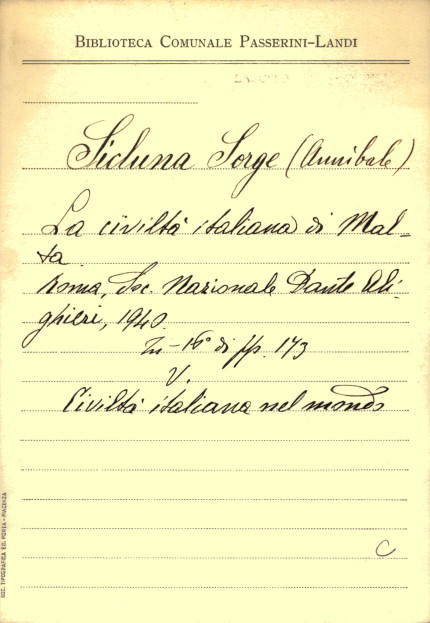 BIBLIOTECA COMUNALE PASSERINI-LANDI
Sicluna Sorge (Annibale)
La civiltà italiana di Mal-
ta
Roma, Soc. Nazionale Dante Ali-
ghieri, 1940.
In-16° di pp. 173
V.
Civiltà italiana nel mondo
C
SOC. TIPOGRAFICA ED. PORTA - PIACENZA